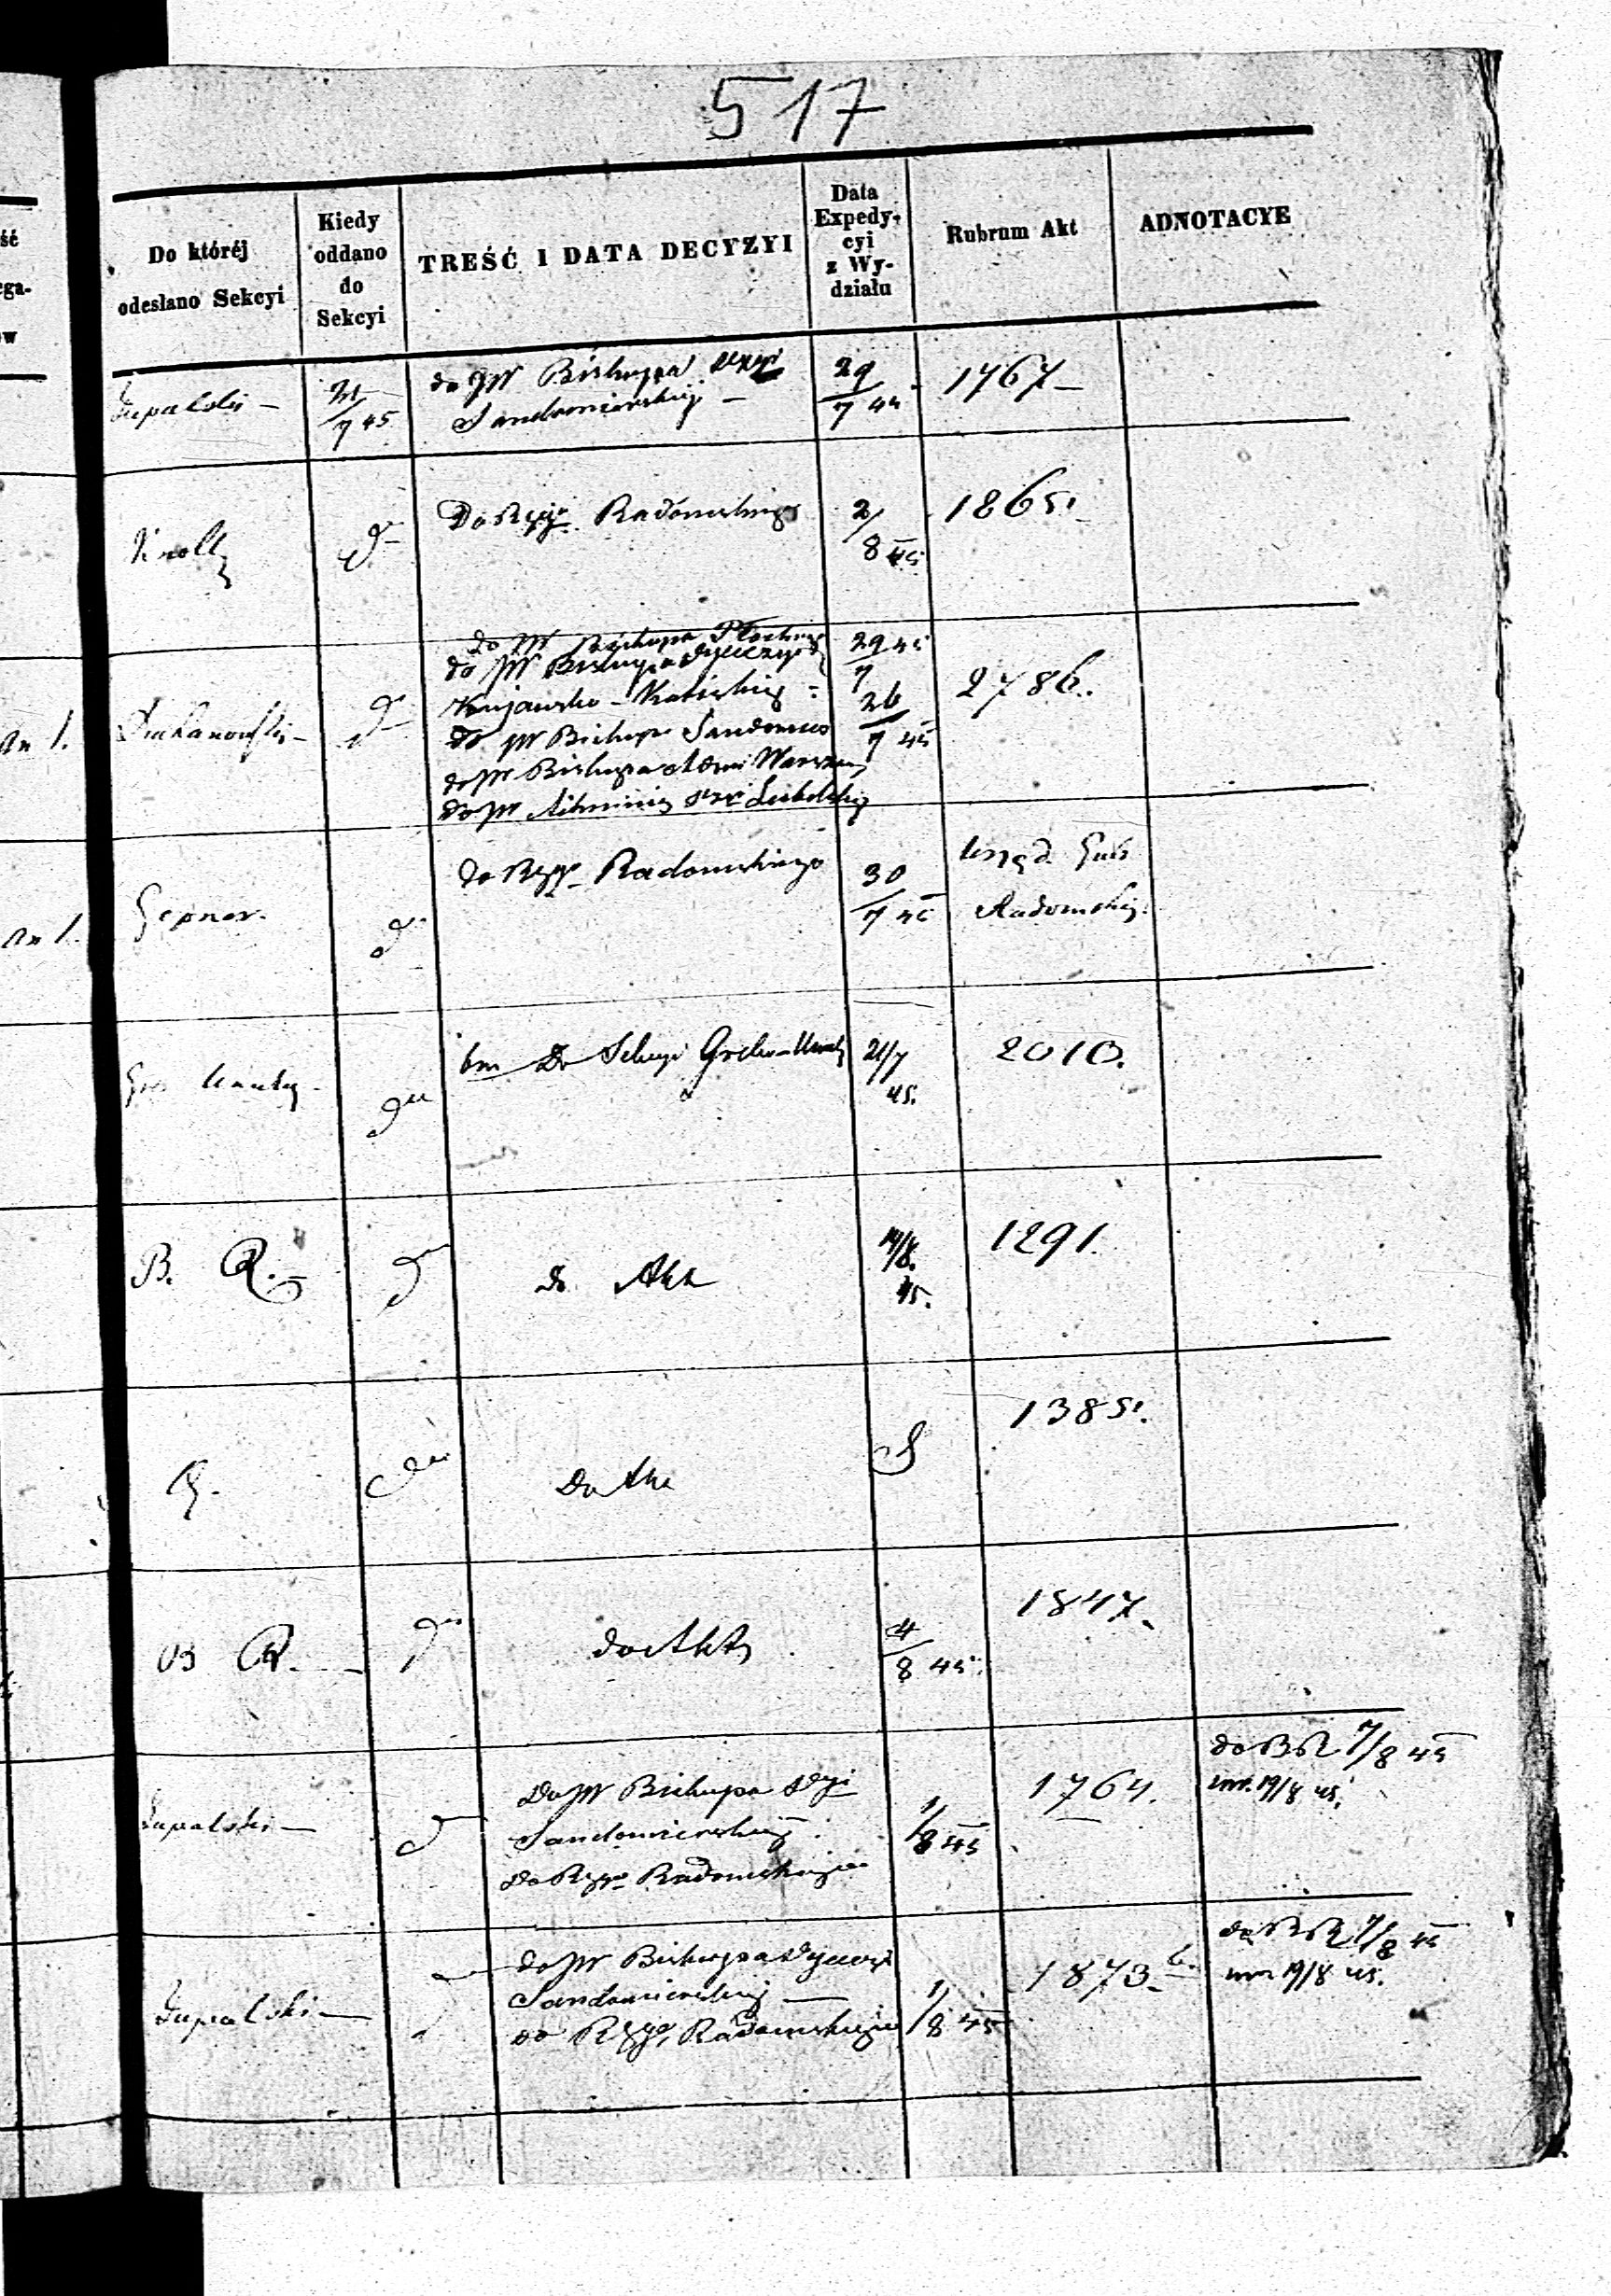 517
Do któréj
odesłano Sekcyi
Kiedy
oddano
do
Sekcyi
TREŚĆ I DATA DECYZYI
Data
Expedy-
cyi
z Wy-
działu
Rubrum Akt
ADNOTACYE
ść
ega-
ow
Zupalski –
21/7 45
do JW Biskupa
Sandomierskiej –
29/7 45
1767 –
Knoll
Do Rzgo Radomskiego
2/8 45
1865.
do JW Biskupa Płockiej
do JW Biskupa Dyecezyi
Kujawsko – Kaliskiej
do JW Biskupa Sandomir
do JW Biskupa Admi Warszaw
do JW Adminis Lubelskiej
29 45/7
26/7 45
2786.
Gepner.
do Rzgo Radomskiego
30/7 45
Urzęd. Gub
Radomskiej.
Do Sekcyi Greko-Unick
21/7
45.
2010.
B. R.
do Akt
14/8.
45.
1291.
Do Akt
1385.
do Akt
4/8 45.
1847.
Zupalski –
Do JW Biskupa Dyi
Sandomierskiej
do Rzgo Radomskiego
1/8 45
1764.
do BR 7/8 45
19/8 45.
Zupalski –
do JW Biskupa Dyecezi
Sandomierskiej –
do Rzgo Radomskiego
1/8 45
1873 b.
do BR 7/8 45
19/8 45.